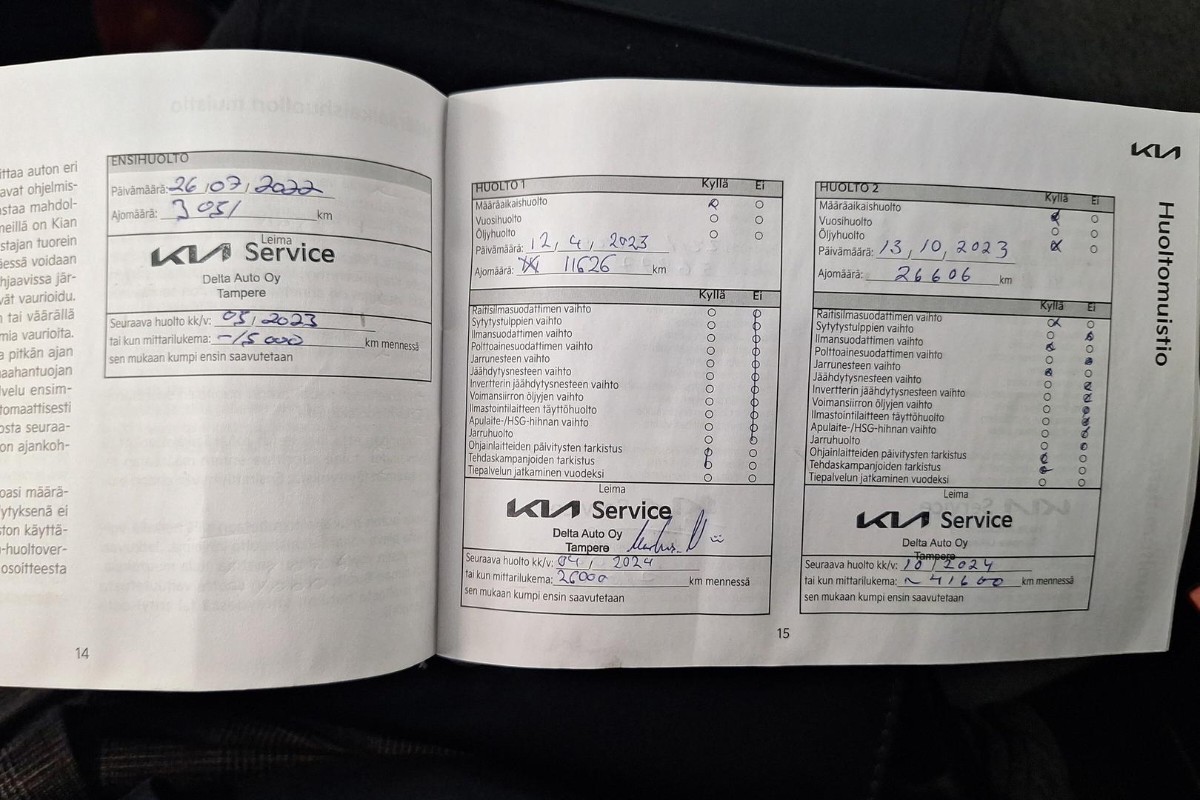 ittaa auton eri
avat ohjelmis-
staa mahdol-
neillä on Kian
stajan tuorein
äessä voidaan
hjaavissa jär-
vät vaurioidu.
n tai väärällä
mia vaurioita.
a pitkän ajan
naahantuojan
velu ensim-
tomaattisesti
osta seuraa-
on ajankoh-
oasi määrä-
ytyksenä ei
ston käyttä-
-huoltover-
osoitteesta
14
ENSIHUOLTO
Päivämäärä: 26,07,2022
Ajomäärä: 3051 km
Leima
KIA Service
Delta Auto Oy
Tampere
Seuraava huolto kk/v: 05,2023
tai kun mittarilukema: ~15000 km mennessä
sen mukaan kumpi ensin saavutetaan
HUOLTO 1
Kyllä Ei
Määräaikaishuolto
Vuosihuolto
Öljyhuolto
Päivämäärä: 12, 4, 2023
Ajomäärä: 11626 km
Kyllä Ei
Raitisilmasuodattimen vaihto
Sytytystulppien vaihto
Ilmansuodattimen vaihto
Polttoainesuodattimen vaihto
Jarrunesteen vaihto
Jäähdytysnesteen vaihto
Invertterin jäähdytysnesteen vaihto
Voimansiirron öljyjen vaihto
Ilmastointilaitteen täyttöhuolto
Apulaite-/HSG-hihnan vaihto
Jarruhuolto
Ohjainlaitteiden päivitysten tarkistus
Tehdaskampanjoiden tarkistus
Tiepalvelun jatkaminen vuodeksi
Leima
KIA Service
Delta Auto Oy
Tampere
Seuraava huolto kk/v: 04, 2024
tai kun mittarilukema: 26000 km mennessä
sen mukaan kumpi ensin saavutetaan
15
HUOLTO 2
Kyllä Ei
Määräaikaishuolto
Vuosihuolto
Öljyhuolto
Päivämäärä: 13, 10, 2023
Ajomäärä: 26606 km
Kyllä Ei
Raitisilmasuodattimen vaihto
Sytytystulppien vaihto
Ilmansuodattimen vaihto
Polttoainesuodattimen vaihto
Jarrunesteen vaihto
Jäähdytysnesteen vaihto
Invertterin jäähdytysnesteen vaihto
Voimansiirron öljyjen vaihto
Ilmastointilaitteen täyttöhuolto
Apulaite-/HSG-hihnan vaihto
Jarruhuolto
Ohjainlaitteiden päivitysten tarkistus
Tehdaskampanjoiden tarkistus
Tiepalvelun jatkaminen vuodeksi
Leima
KIA Service
Delta Auto Oy
Tampere
Seuraava huolto kk/v: 10/2024
tai kun mittarilukema: ~41600 km mennessä
sen mukaan kumpi ensin saavutetaan
KIA
Huoltomuistio